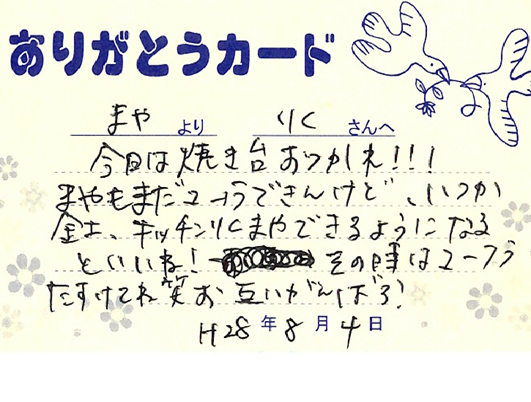 ありがとうカード
まや より りく さんへ
今日は焼き台おつかれ!!!
まやもまだユーうできんけど、いつか
金土、キッチンりくまやできるようになる
といいね! その時はユーフう
たすけてね笑お互いがんばろ!
H28年8月4日